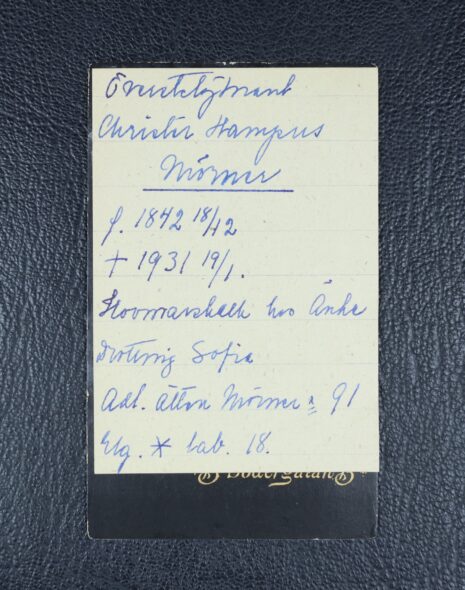 Överstelöjtnant
Christer Hampus
Mörner
f. 1842 18/12
† 1931 19/1.
Hovmarskalk hos Änke
drottning Sofia
Adl. ätten Mörner 91
Elg. * tab. 18.
Södergatan